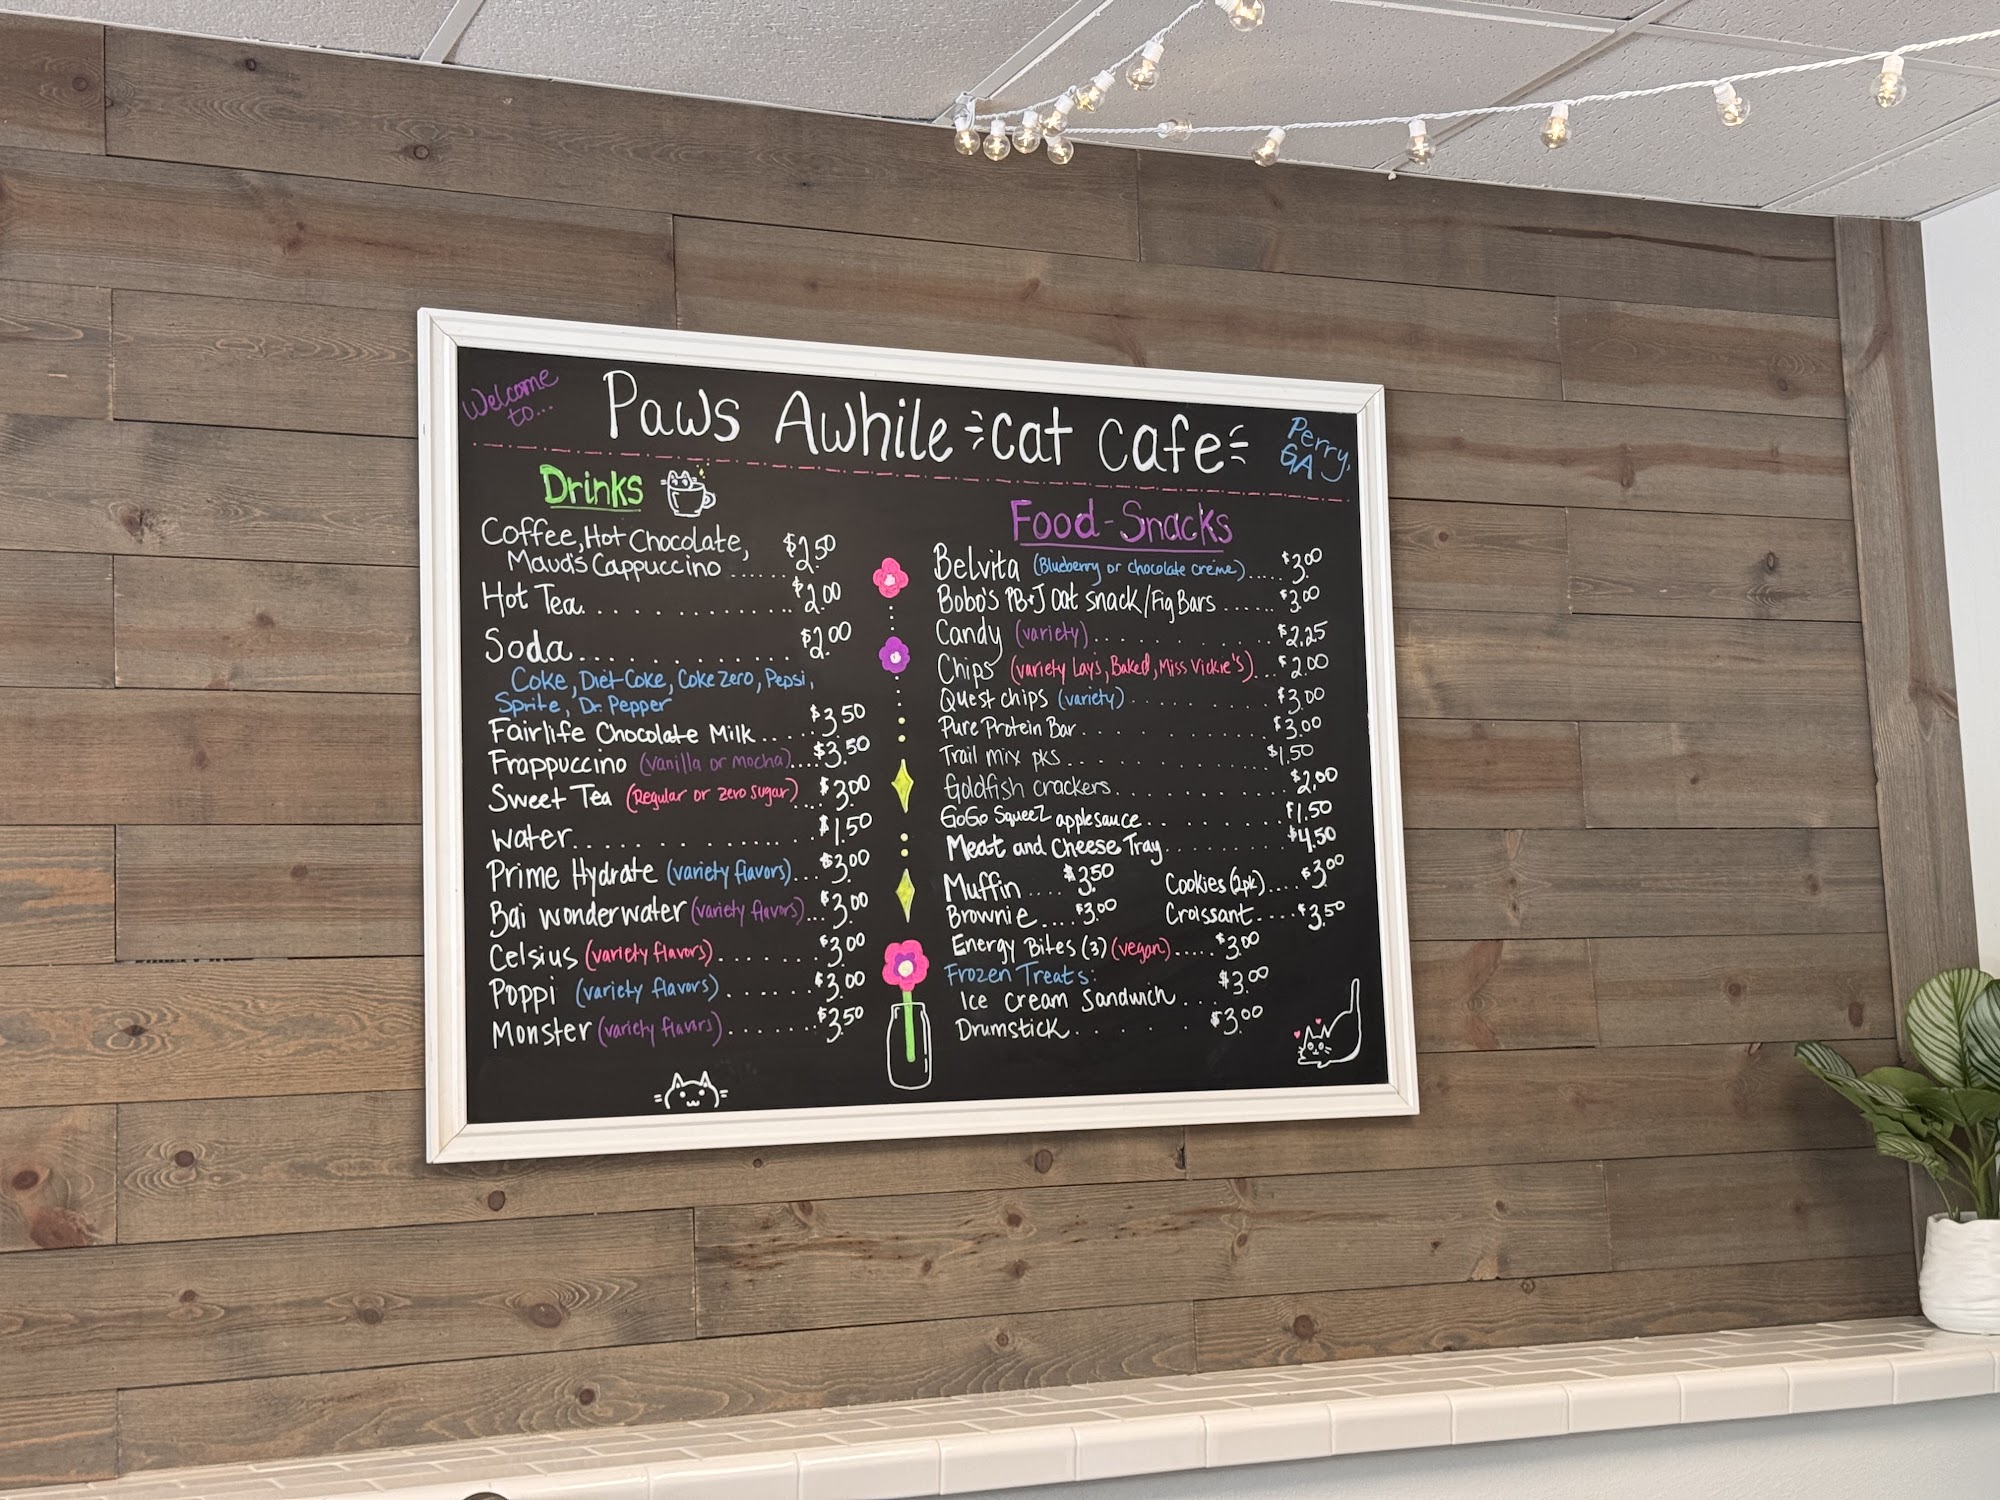 Welcome to...
Paws Awhile cat cafe
Perry, GA
Drinks
Coffee, Hot Chocolate,
Maud's Cappuccino ...... $2.50
Hot Tea. . . . . . . . . . . . . $2.00
Soda. . . . . . . . . . . . $2.00
Coke, Diet Coke, Coke Zero, Pepsi,
Sprite, Dr. Pepper
Fairlife Chocolate Milk ..... $3.50
Frappuccino (vanilla or mocha).... $3.50
Sweet Tea (Regular or zero sugar)... $3.00
Water. . . . . . . . . . . . $1.50
Prime Hydrate (variety flavors)... $3.00
Bai wonderwater (variety flavors)... $3.00
Celsius (variety flavors). . . . . . $3.00
Poppi (variety flavors) . . . . . . $3.00
Monster (variety flavors) . . . . . . $3.50
Food-Snacks
Belvita (Blueberry or chocolate creme)..... $3.00
Bobo's PB+J oat snack/Fig Bars ...... $3.00
Candy (variety). . . . . . . . . . $2.25
Chips (variety Lays, Baked, Miss Vickie's)... $2.00
Quest chips (variety) . . . . . . . . $3.00
Pure Protein Bar . . . . . . . . . . $3.00
Trail mix pks . . . . . . . . . . . $1.50
Goldfish crackers. . . . . . . . . . $2.00
GoGo SqueeZ applesauce . . . . . . . . $1.50
Meat and Cheese Tray. . . . . . . . . $4.50
Muffin .... $3.50 Cookies (2pk).... $3.00
Brownie.... $3.00 Croissant..... $3.50
Energy Bites (3) (vegan)..... $3.00
Frozen Treats:
Ice cream Sandwich . . . $3.00
Drumstick . . . . . . $3.00